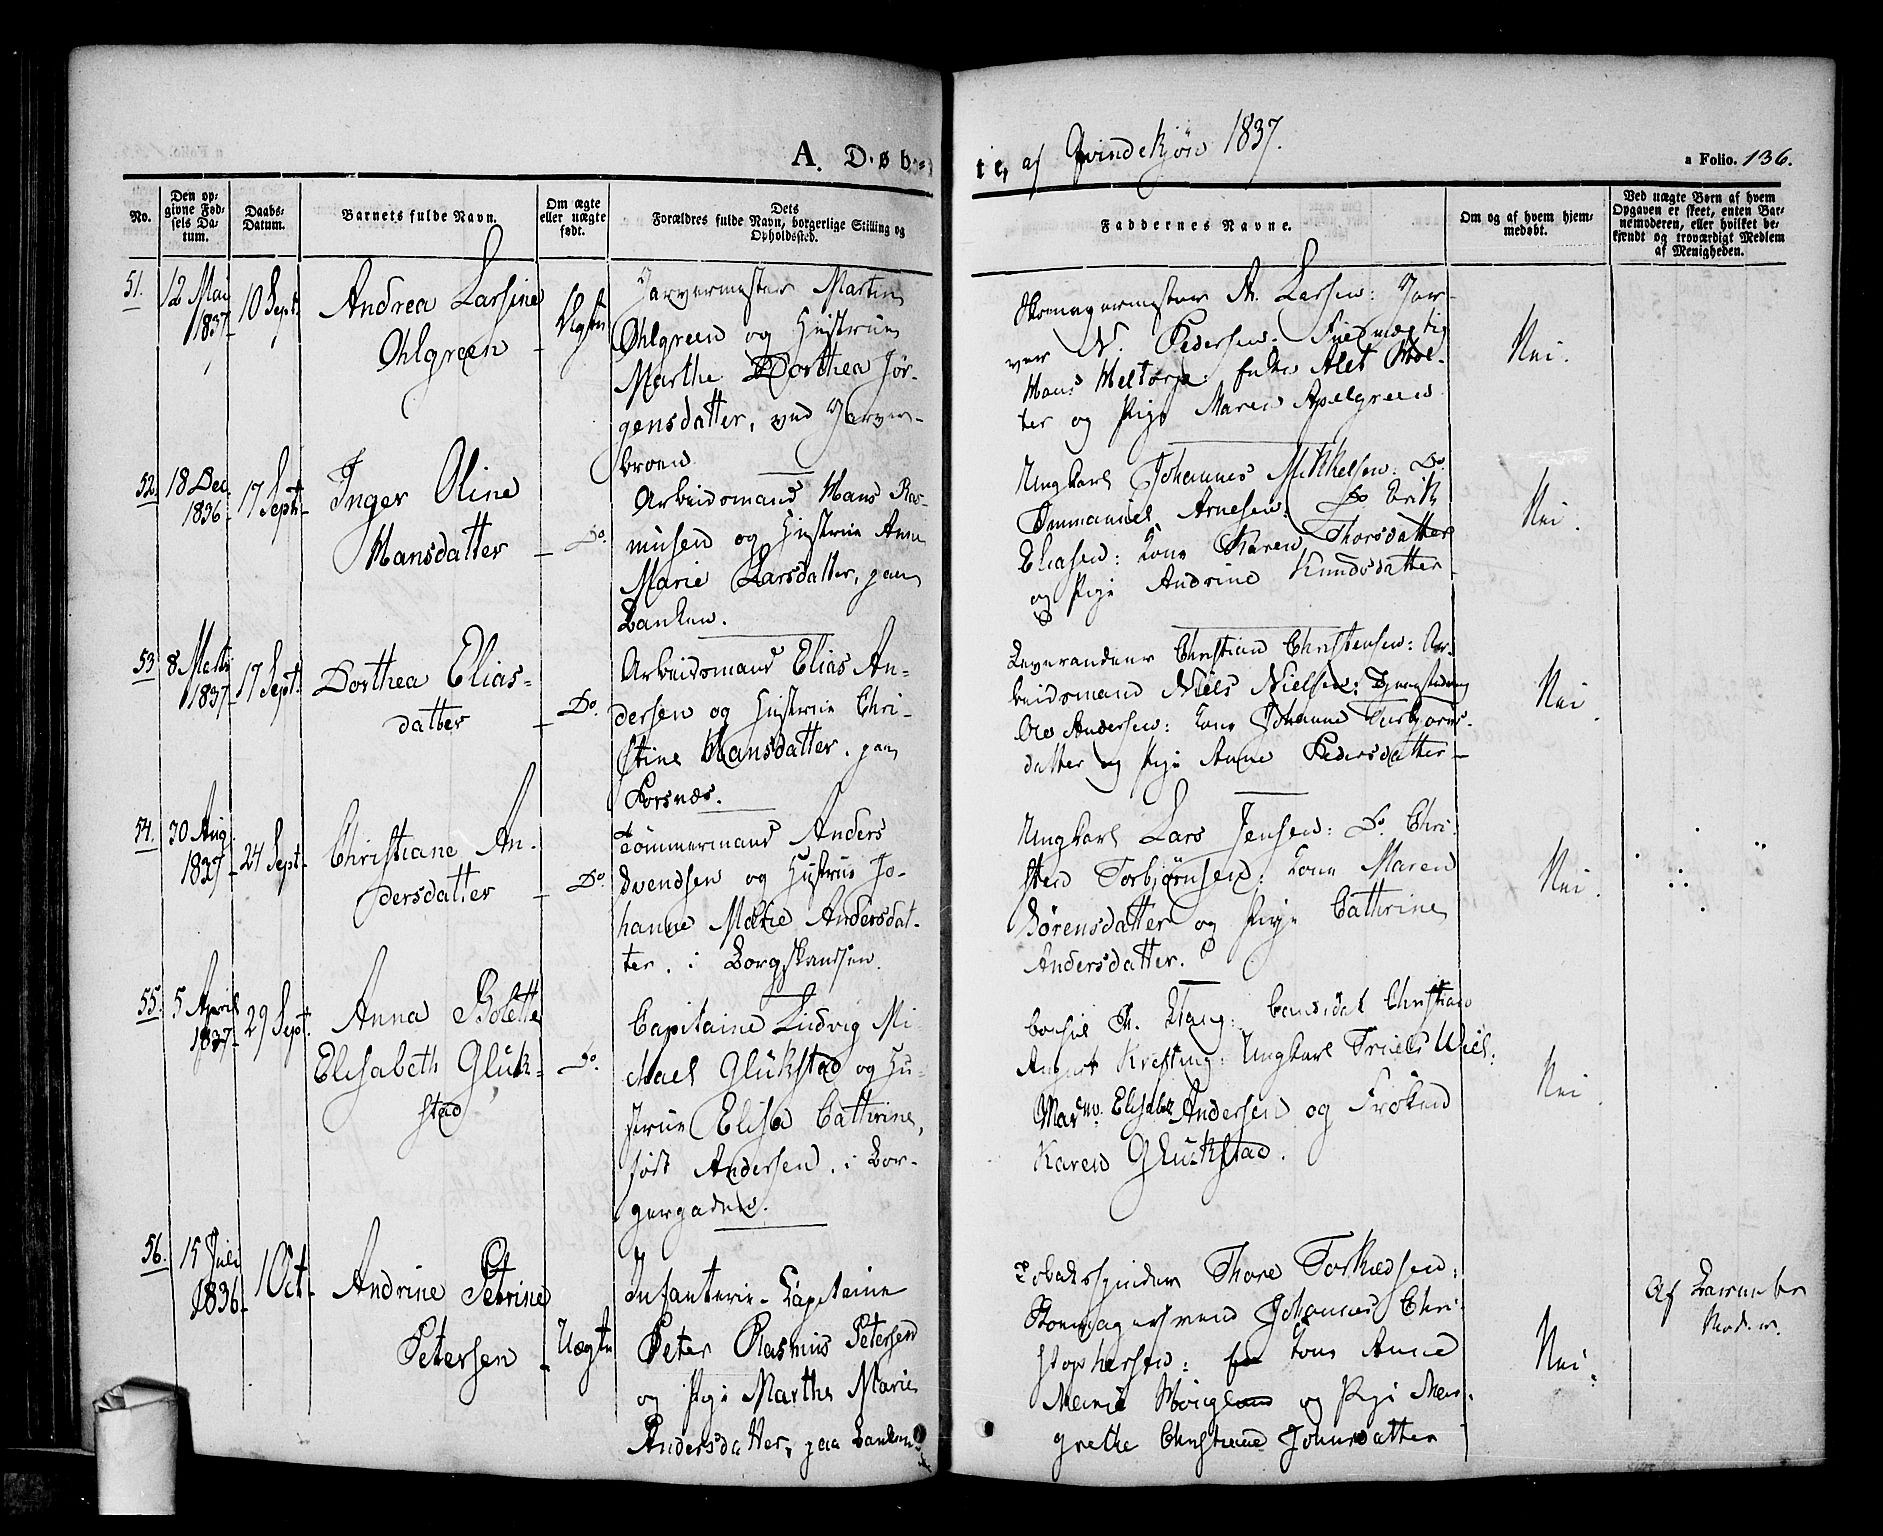 A. Døb=
te, af Qvindekjøn 1837.
a Folio. 136.
No.
Den op-
givne Fød-
sels Da-
tum.
Daabs-
Datum.
Barnets fulde Navn.
Om ægte
eller uægte
født.
Dets
Forældres fulde Navn, borgerlige Stilling og
Opholdssted.
Faddernes Navne.
Om og af hvem hjem-
medøbt.
Ved uægte Børn af hvem
Opgaven er skeet, enten Bar-
nemoderen, eller hvilket be-
kjendt og troværdigt Medlem
af Menigheden.
51.
12 Mai
1837
10 Sept.
Andrea Larsine
Ohlgreen
Ægte
Farvermester Martin
Ohlgreen og Hustrue
Marthe Dorthea Jør-
gensdatter, ved Farver-
broen
Skomagermester A. Larsen: Far-
ver N. Pedersen. Fuldmægtig
Hans Meltorp: Enke Alet
ter og Pige Maren Apelgreen
Nei.
52.
18 Dec.
1836
17 Sept.
Inger Oline
Hansdatter
Do.
Arbeidsmand Hans Ras-
musen og Hustrue Anne
Marie Larsdatter, paa
Banken.
Ungkarl Johannes Mikkelsen: Do.
Emmanuel Arnesen: Do Erik
Eliasen: Kone Karen Thorsdatter
og Pige Andrine Knudsdatter
Nei.
53
8 Marts
1837
17 Sept.
Dorthea Elias-
datter
Do.
Arbeidsmand Elias An-
dersen og Hustrue Chri-
stine Hansdatter. paa
Porsnæs.
Leverandeur Christian Christensen: Ar-
beidsmand Niels Nielsen: Tjenestedreng
Ole Andersen: Kone Johanne Torbjørns-
datter og Pige Anne Pedersdatter
Nei.
54.
30 Aug.
1837
24 Sept.
Christiane An-
dersdatter
Do.
Tømmermand Anders
Svendsen og Hustrue Jo-
hanne Marie Andersdat-
ter. i Borgskandsen.
Ungkarl Lars Jensen: Do. Chri-
sten Torbjørnsen: Kone Maren
Sørensdatter og Pige Cathrine
Andersdatter.
Nei.
55.
5 April
1837
29 Sept.
Anna Bolette
Elisabeth Glük-
stad
Do.
Capitaine Ludvig Mi-
chael Glükstad og Hu-
strue Elisa Cathrine,
født Andersen. i Bor-
gergaden.
Consul Th. Stang: Candidat Christian
August Krefting: Ungkarl Friels Wiel:
Mad. Elisabet Andersen og Frøken
Karen Glückstad.
Nei.
56.
15 Juli
1836
1 Oct.
Andrine Petrine
Petersen
Uægte
Infanterie-Capitaine
Peter Rasmus Petersen
og Pige Marthe Marie
Andersdatter, paa Banken
Tobakspinder Thore Torkildsen:
Skomagersvend Johannes Chri-
stophersen: Kone Anne
Marie og Pige Mar-
grethe Christiane Johnsdatter
Nei.
Af Barnets
Moder.